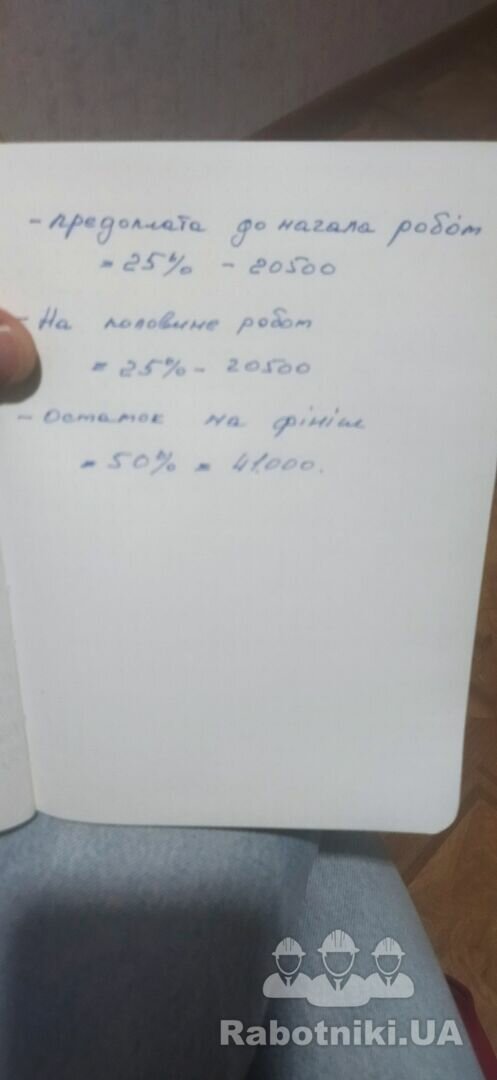 - предоплата до начала робо́т
= 25% - 20500
- На половине робот
= 25% - 20500
- Остаток на фініш
= 50% = 41.000.
Rabotniki.UA